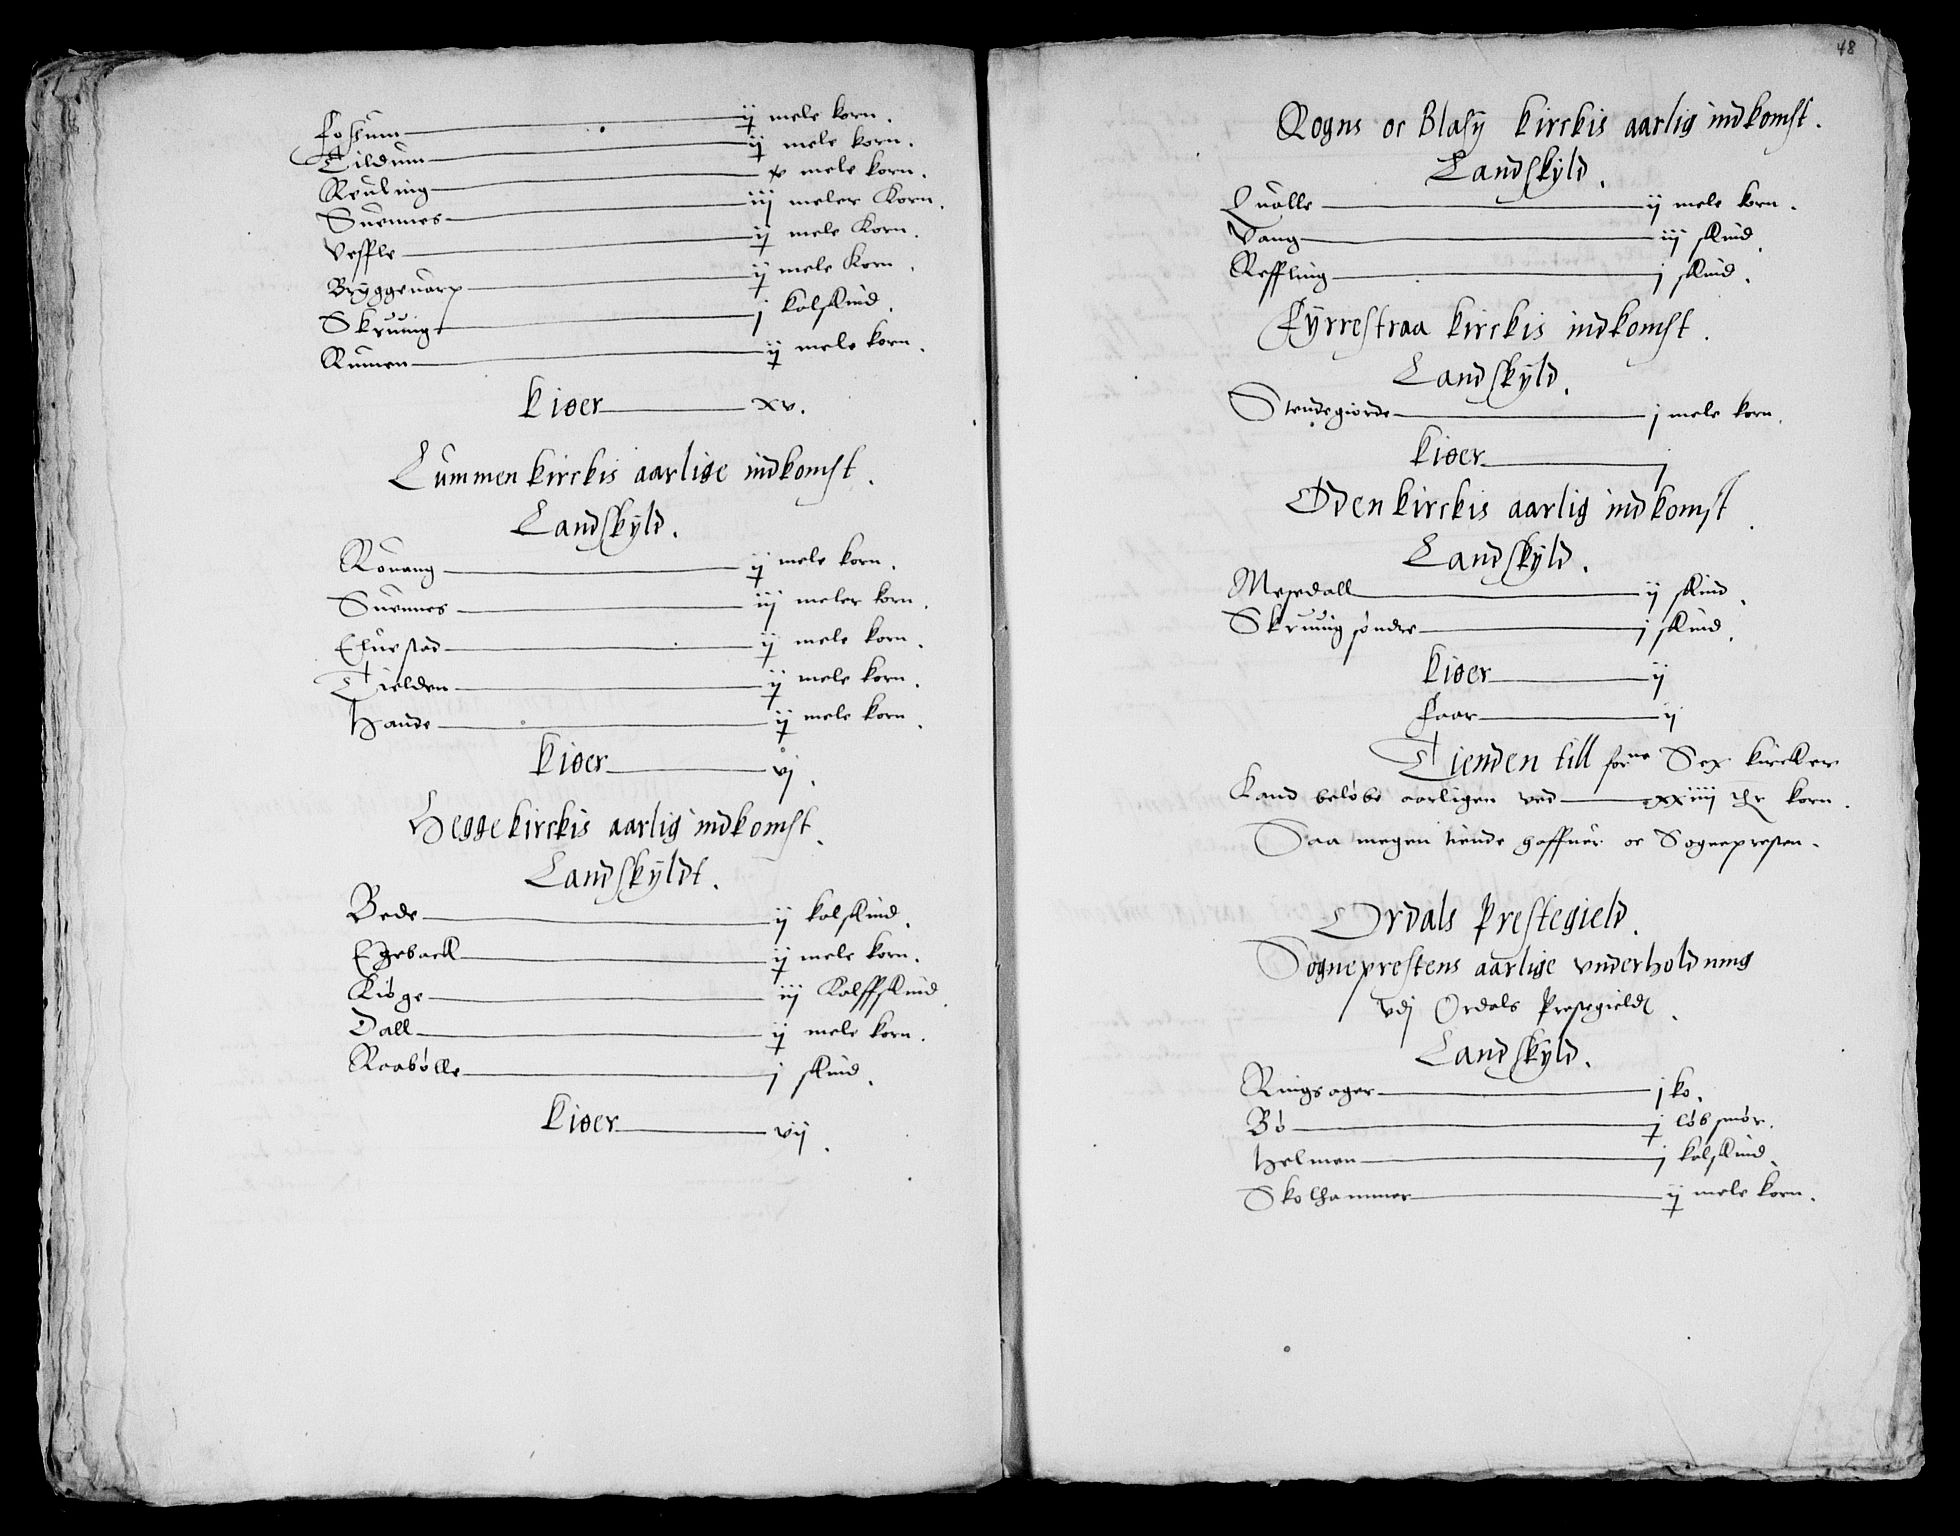 Fossum ij mele korn.
Tildum ij mele korn.
Reuling x mele korn.
Suennes iij meler Korn.
Veffle ij mele Korn.
Bryggeuarp ij mele Korn.
Skruuig j kalskind.
Rumen ij mele korn.
Kiøer xv.
Lummen kirckis aarlige indkomst.
Landskyld.
Rouang ij mele korn.
Suennes iij meler korn.
Eluestad ij mele korn.
Tielden ij mele korn.
Hande ij mele korn.
Kiøer vj.
Hegge kirckis aarlig indkomst.
Landskyldt.
Bede ij kalskind.
Egeback ij mele korn.
Kiøge iij Kalffskind
Dall ij mele korn.
Raabølle j skind.
Kiøer vij.
48
Rogns oc Blasij kirckis aarlig indkomst.
Landskyld.
Qualle ij mele korn.
Vang iij skind.
Reffling j skind.
Fyrrestraa kirckis indkomst.
Landskyld.
Stendegiorde j mele korn.
Kiøer j
Øden kirckis aarlig indkomst.
Landskyld.
Mesedall ij skind.
Skruuig søndre j skind.
Kiøer ij
Faar ij
Tienden till forne Sex kircker
Kand beløbe aarligen ved xxiiij thr korn.
Saa megen tiende haffuer oc Sognepresten.
Ordals Prestegield.
Sogneprestens aarlige vnderholdning
vdj Ordals Prestegield.
Landskyld.
Ringsager j ko.
Bø j løb smør.
Helmen j kalskind.
Skolhammer ij mele korn.